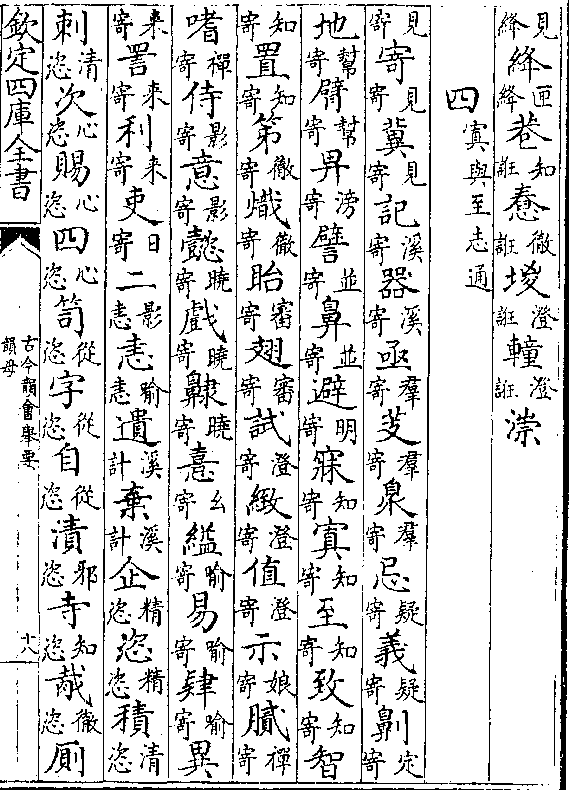 見絳絳匣絳巷知誑惷徹誑澄誑澄誑漴
四寘與至志通
見寄寄見寄冀見寄記溪寄器溪寄亟羣寄芰羣寄臮羣寄忌疑寄義疑寄劓定寄
地幫寄臂幫寄畀滂寄譬並寄鼻並寄避明寄寐知寄寘知寄至知寄致知寄智
知寄置知寄第徹寄熾徹寄眙審寄翅審寄試澄寄緻澄寄值澄寄示娘寄膩禪寄
嗜禪寄侍影寄意影寄懿曉寄戲曉寄齂曉寄憙幺寄縊喻寄易喻寄肄喻寄異
来寄詈来寄利来寄吏日寄二影恚恚喻恚遺溪計棄溪計企精恣恣精恣積清恣
刺清恣次心恣賜心恣四心恣笥從恣字從恣自從恣漬邪恣寺知恣胾徹恣厠
欽定四庫全書
古今韻會舉要
韻母
十八